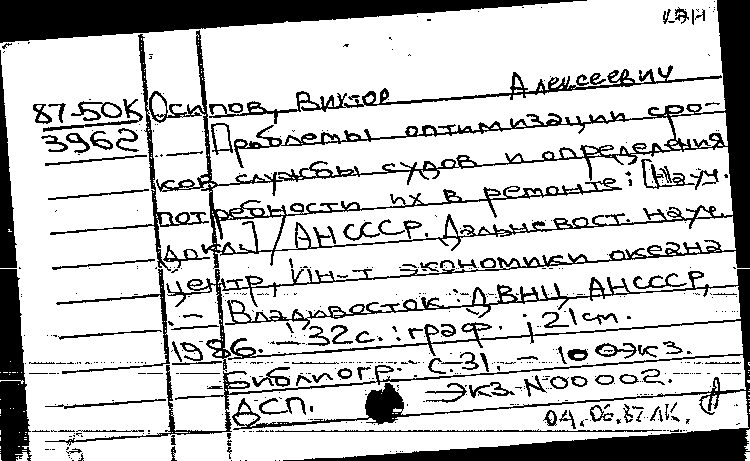 КЭН
87-50К Осипов, Виктор Алексеевич
3962 Проблемы оптимизации сро-
ков службы судов и определения
потребности их в ремонте; [Науч.
докл.] / АН СССР. Дальневост. науч.
центр, Ин-т экономики океана
. - Владивосток : ДВНЦ АН СССР,
1986. - 32 с. : граф. ; 21 см.
Библиогр.: с. 31. - 100 экз.
ДСП. - Экз. N 00002.
04.06.87 ЛК.